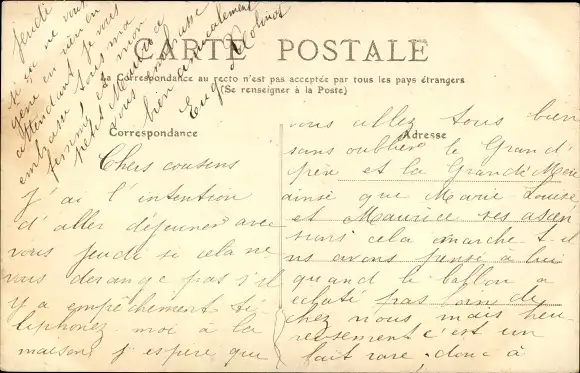 CARTE POSTALE
La Correspondance au recto n'est pas acceptée par tous les pays étrangers
(Se renseigner à la Poste)
Correspondance
Adresse
Chers cousens
j'ai l'intention
d'aller déjeuner avec
vous jeudi si cela ne
vous derange pas s'il
y a empêchement té
liphonez moi à la
maison, j'espère que
vous allez tous bien
sans oublier le Grand'
père et la Grand'Mère
ainsi que Marie Louise,
et Maurice ses ascen
sions cela marche t-il
ns avons pensé à lui
quand le ballon a
eclaté pas loin de
chez nous mais heu
reusement c'est un
fait rare. donc à
jeudi
si ça ne vous
gene en rien en
attendant je vous
embrasse tous ma
femme, et mon
petit Maurice
vous embrasse
bien amicalement
Eug